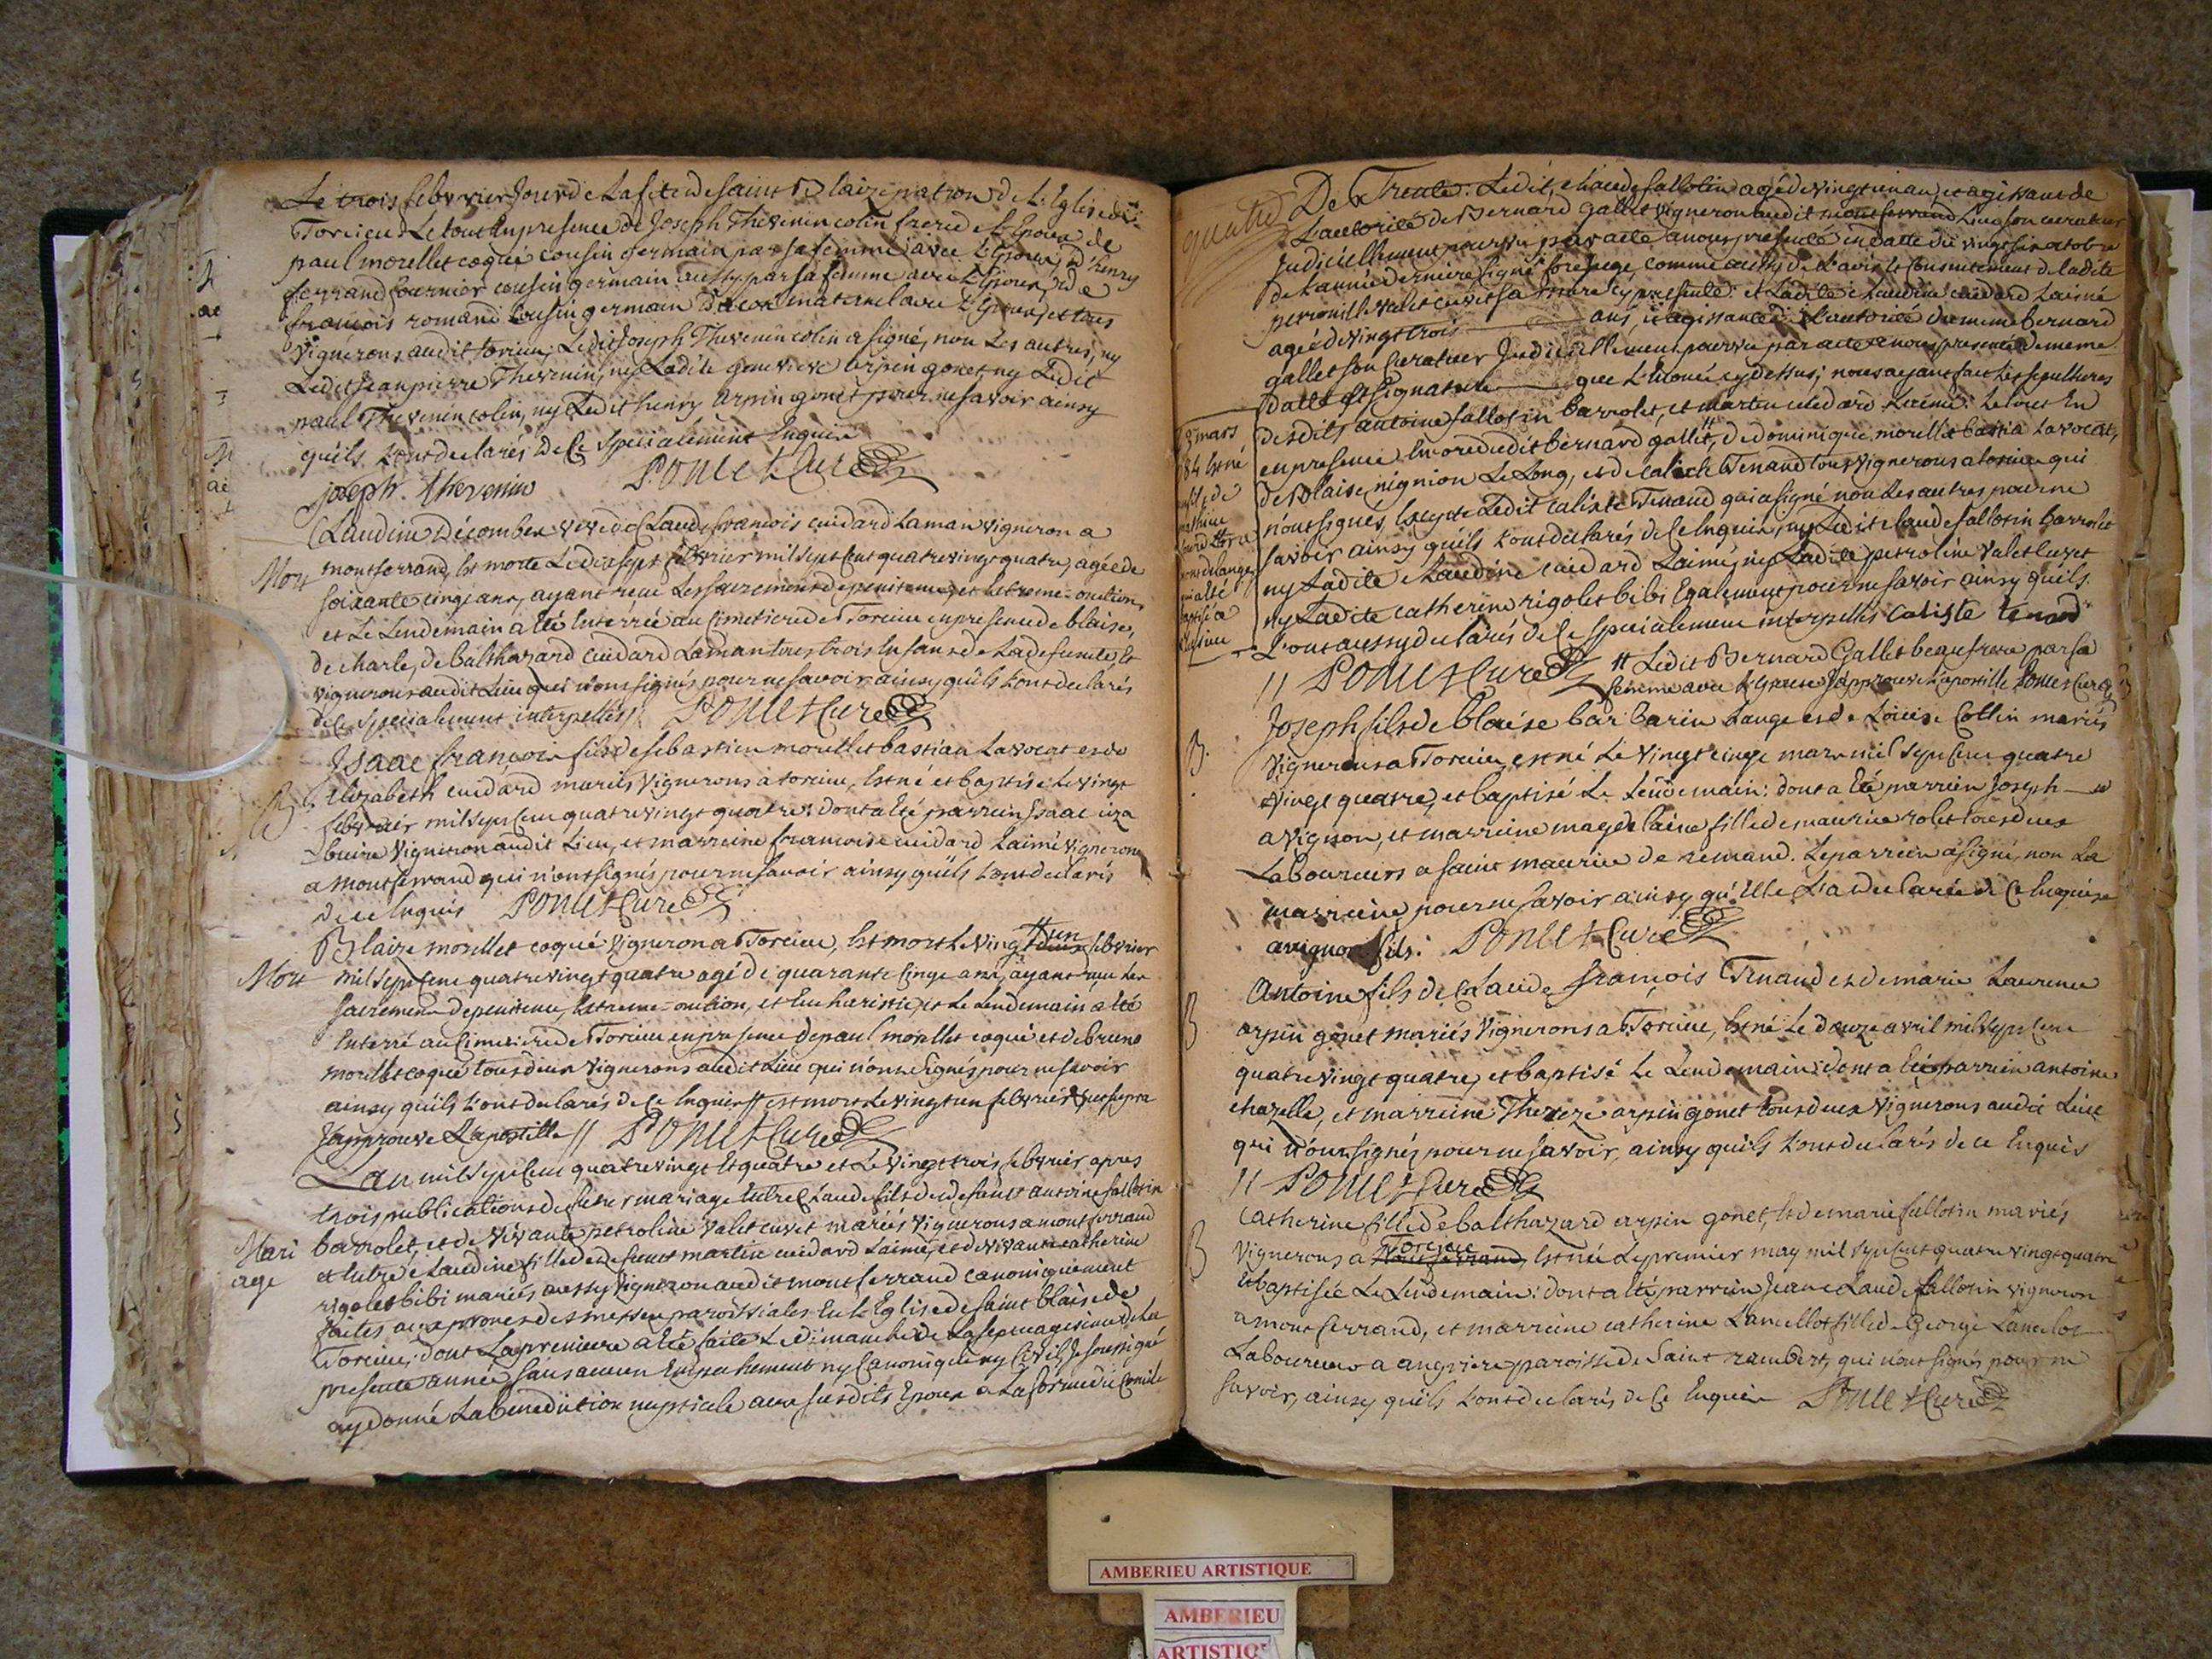 Le trois febvrier Jour de La fete de saint Blaize patron de L'Eglise de
Torcieu. Le tout En presence de Joseph Thevenin colin frere de L'Epoux de
paul morellet coqué cousin germain par sa femme avec L'Epoux, d'henry
ferrand fournier cousin germain aussy par sa femme avec L'Epoux, de
francois romand cousin germain maternel avec L'Epoux, et tous
vignerons audit torcieu; Ledit Joseph Thevenin colin a signé, non Les autres, ny
Ledit Jean pierre Thevenin, ny Ladite genevieve arpin gonet, ny Ledit
paul Thevenin colin, ny Ledit henry arpin gonet pour ne savoir ainsy
quils L'ont declarés de Ce specialement Enquis
joseph thevenin Ponset Curé
Claudine Décomben veve de Claude francois cuidard Laman vigneron a
Mort montferrand, Est morte Le dix sept febvrier mil sept Cent quatre vingt quatre, agée de
soixante cinq ans, ayant reçu Les sacrements de penitence, et Extreme-onction,
et Le Lendemain a Eté Enterrée au Cimetiere de Torcieu en presence de blaise,
de charle, de balthazard cuidard Laman tous trois Enfans de La defunte, Et
vignerons audit Lieu qui n'ont signés pour ne savoir ainsy quils L'ont declarés
de Ce specialement interpellés // Ponset Curé
Isaac francois fils de sebastien morellet bastian Lavocat et de
B Elizabeth cuidard mariés vignerons a torcieu, Est né et baptisé Le vingt
febvrier mil sept Cent quatre vingt quatre: dont a Eté parrein Isaac
buire vigneron audit Lieu, et marreine francoise cuidard Laimé vigneronne
a montferrand qui n'ont signés pour ne savoir ainsy quils L'ont declarés
de ce Enquis Ponset Curé
Blaize morellet coqué vigneron a Torcieu, Est mort Le vingt un febvrier
Mort mil sept Cent quatre vingt quatre agé de quarante Cinq ans, ayant reçu Les
sacremens de penitence, Extreme-onction, et Eucharistie, et Le Lendemain a Eté
Enterré au Cimetiere de Torcieu en presence de paul morellet coqué et de bruno
morellet coqué tous deux vignerons audit Lieu qui n'ont signés pour ne savoir
ainsy quils L'ont declarés de Ce Enquis // est mort Le vingt un febvrier
J'approuve L'apostille // Ponset Curé
L'an mil sept Cent quatre vingt Et quatre et Le vingt trois febvrier apres
trois publications de futur mariage Entre Claude fils de defunt antoine fallotin
Mari barrolet, et de vivante petroline valet cuvet mariés vignerons a montferrand
age et Entre Claudine fille de defunt martin cuidard Laimé, et de vivante catherine
rigolet bibi mariés aussy vigneron audit montferrand canoniquement
faites aux prones des messes paroissiales En L'Eglise de saint blaise de
Torcieu, dont La premiere a Eté faite Le dimanche de La septuagesime de La
presente année sans aucun Empechement ny Canonique ny Civil, Je soussigné
ay donné La benediction nuptiale aux susdits Epoux a La forme du Concile
quatre De Trente: Ledit Claude fallotin agé de vingt un an, et agissant de
L'autorité de Bernard gallet vigneron audit montferrand Lieu son curateur
Judiciellement pourvu par acte a nous presenté en datte du vingt six octobre
de L'année derniere signé forest juge, comme aussy de L'avis et Consentement de Ladite
petronille valet cuvet sa mere cy presente: et Ladite Claudine cuidard Laimé
agée de vingt trois ans, et agissante de L'autorité du meme bernard
gallet son Curateur Judiciellement pourvu par acte a nous presenté de meme
datte et signature que L'Enoncé cy dessus; nous ayant fait Les sepultures
desdits antoine fallotin barrolet, et martin cuidard Laimé: Le tout En
en presence Encore dudit bernard gallet, # de dominique morellet bastia Lavocat,
de Blaise nignion Le Long, et de calixte Tenand tous vignerons a torcieu qui
n'ont signés, Excepté Ledit calixte Tenand qui a signé non Les autres pour ne
savoir ainsy quils L'ont declarés de Ce Enquis, ny Ledit Claude fallotin barrolet
ny Ladite Claudine cuidard Laimé, ny Ladite petroline valet cuvet
ny Ladite catherine rigolet bibi Egalement pour ne savoir ainsy quils
L'ont aussy declarés de Ce specialement interpellés caliste tenand
// Ponset Curé # Ledit Bernard Gallet beaufrere par sa
femme avec L'Epouse J'approuve L'apostille Ponset Curé
mars
84 Est né
fils de
Joseph fils de blaise barbarin bauge et de Loüise Collin mariés
B. vignerons a Torcieu, est né Le vingt cinq mars mil sept Cent quatre
vingt quatre, et baptisé Le Lendemain: dont a Eté parrien Joseph
avignon, et marreine magdelaine fille de maurice rolet tous deux
Laboureurs a saint maurice de remand. Le parrein a signé, non La
marreine pour ne savoir ainsy qu'Elle L'a declarée de Ce Enquise
avignon fils. Ponset Curé
Antoine fils de Claude francois Tenand et de marie Laurence
B arpin gonet mariés vignerons a Torcieu, Est né Le douze avril mil sept Cent
quatre vingt quatre, et baptisé Le Lendemain: dont a Eté parrein antoine
chazelle, et marreine Thereze arpin gonet tous deux vignerons audit Lieu
qui n'ont signés pour ne savoir, ainsy quils L'ont declarés de ce Enquis
// Ponset Curé
Catherine fille de balthazard arpin gonet, et de marie fallotin mariés
B vignerons a Torcieu Est née Le premier may mil sept Cent quatre vingt quatre
et baptisée Le Lendemain: dont a Eté parrein Jean Claude fallotin vigneron
a montferrand, et marreine catherine Lancellot fille de George Lancelot
Laboureur a angriere paroisse de Saint rambert, qui n'ont signés pour ne
savoir, ainsy quils L'ont declarés de Ce Enquis Ponset Curé
AMBERIEU ARTISTIQUE
AMBERIEU
ARTISTIQ